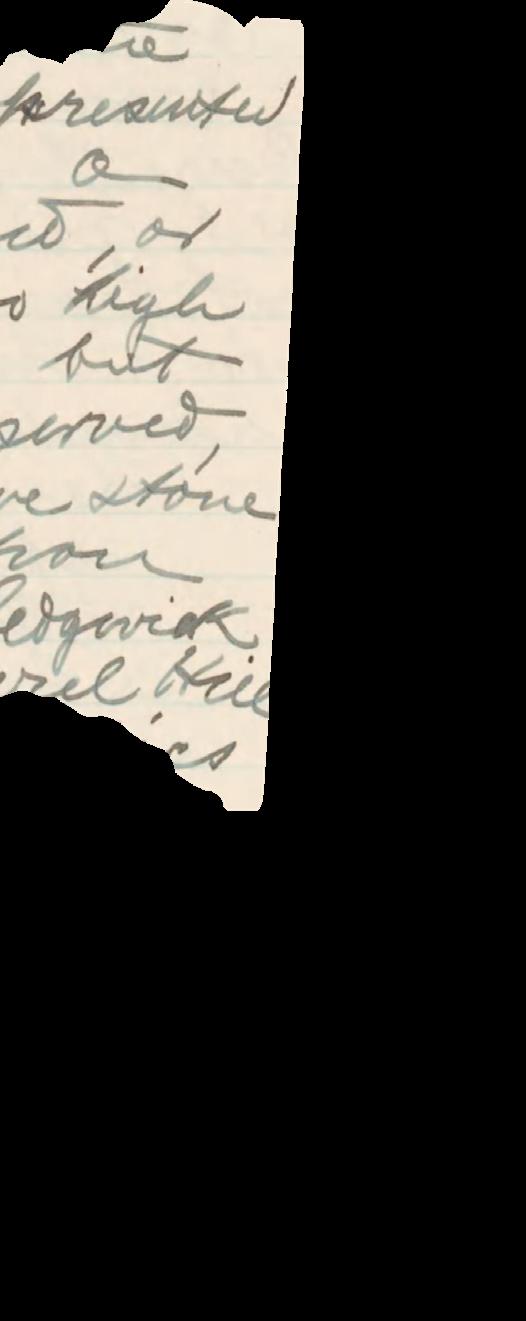 te
presented
a
ed, or
o high
but
served,
ve stone
hou
edgwick
urel Hill
ics